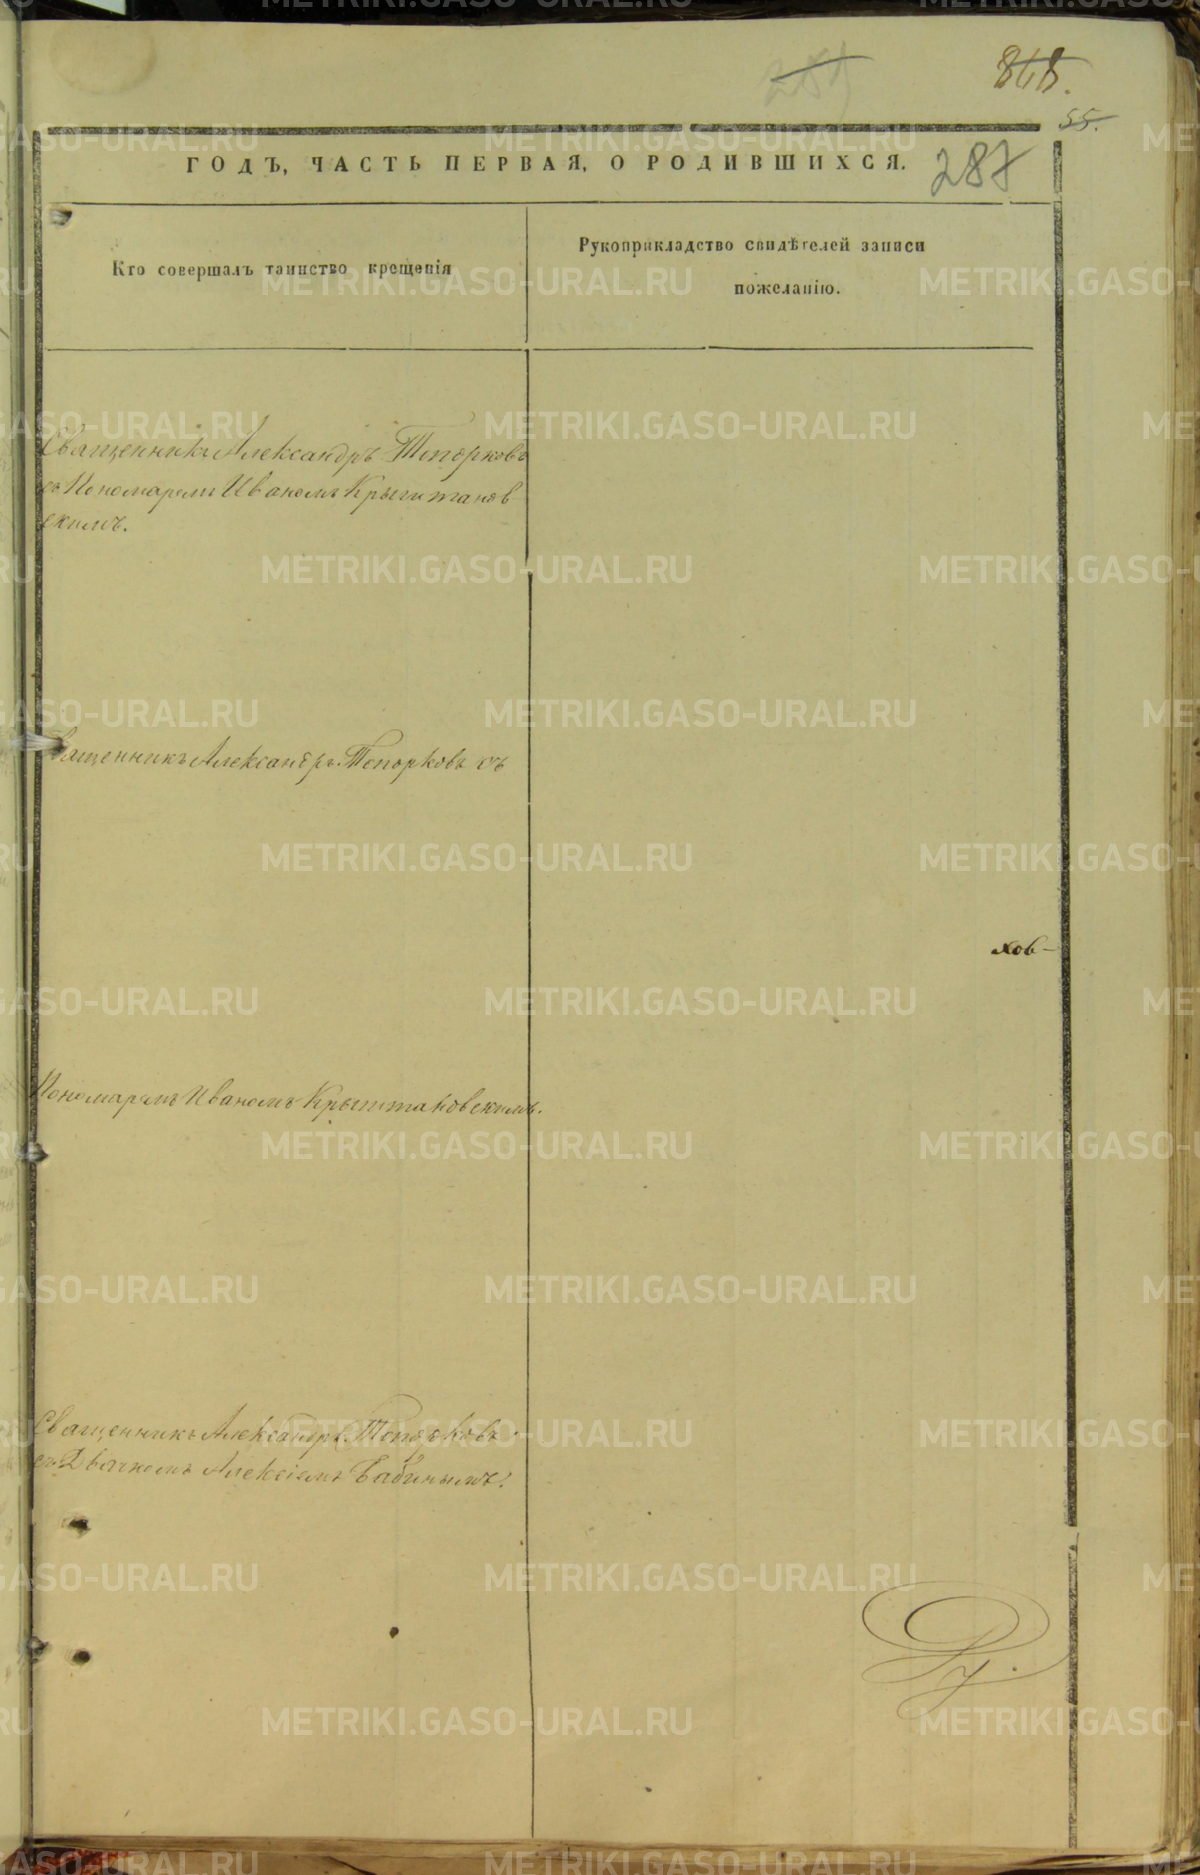 848.
55.
287
ГОДЪ, ЧАСТЬ ПЕРВАЯ, О РОДИВШИХСЯ.
Кто совершалъ таинство крещенія
Рукоприкладство свидѣтелей записи
пожеланію.
Священникъ Александръ Топорковъ
съ Пономаремъ Иваномъ Крыштанов
скимъ.
Священникъ Александръ Топорковъ съ
хов-
Пономаремъ Иваномъ Крыштановскимъ.
Священникъ Александръ Топорковъ
съ Дьячкомъ Алексіемъ Бабинымъ.
METRIKI.GASO-URAL.RU